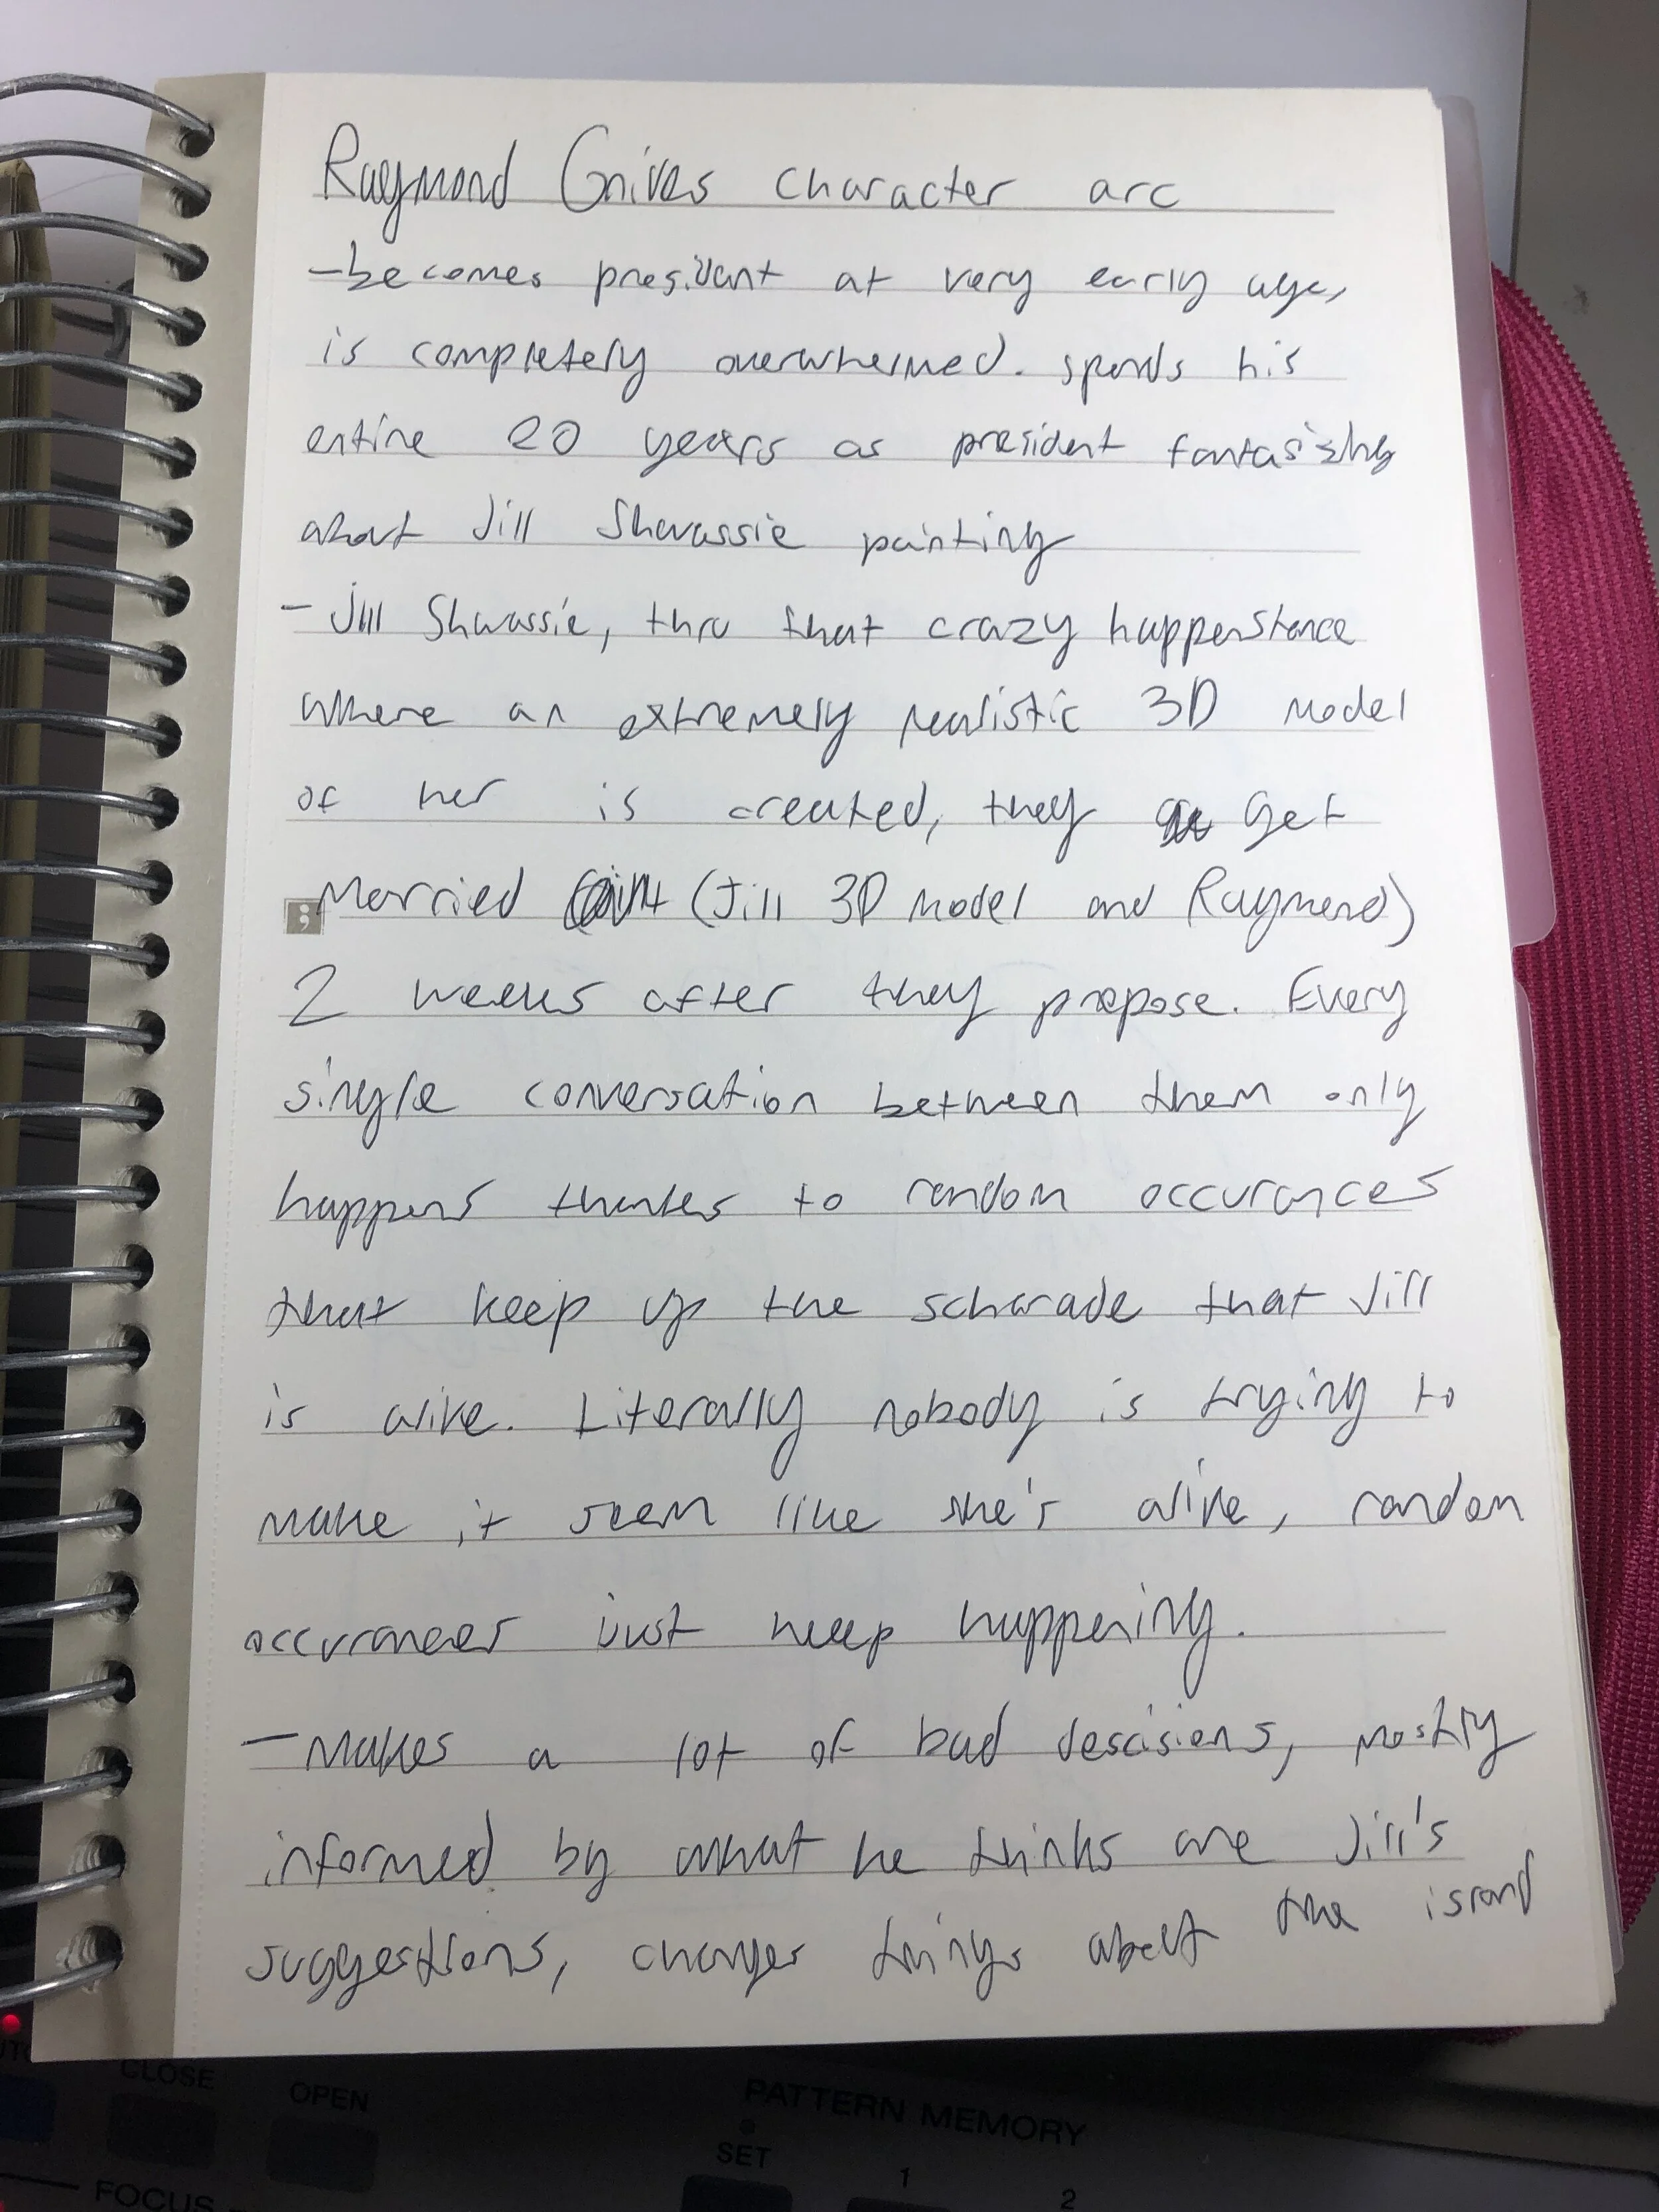 Raymond Gnives character arc
-becomes president at very early age,
is completely overwhelmed. spends his
entire 20 years as president fantasizing
about Jill Shwassie painting
- Jill Shwassie, thru that crazy happenstance
where an extremely realistic 3D model
of her is created, they get
Married (Jill 3D model and Raymond)
2 weeks after they propose. Every
single conversation between them only
happens thanks to random occurances
that keep up the scharade that Jill
is alive. Literally nobody is trying to
make it seem like she's alive, random
occurances just keep happening.
- Makes a lot of bad descisions, mostly
informed by what he thinks are Jill's
suggestions, changes things about the island
CLOSE
OPEN
PATTERN MEMORY
SET
1
2
FOCUS